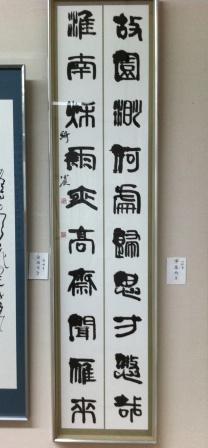 故園渺何處歸思方悠哉
淮南秋雨夜高齋聞雁來